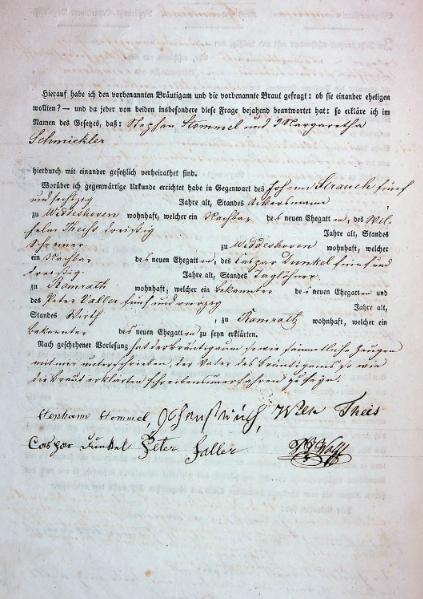 Hierauf habe ich den vorbenannten Bräutigam und die vorbenannte Braut gefragt: ob sie einander ehelichen
wollten? — und da jeder von beiden insbesondere diese Frage bejahend beantwortet hat: so erkläre ich im
Namen des Gesetzes, daß: Stephan Stommel und Margaretha
Schmickler
hierdurch mit einander gesetzlich verheirathet sind.
Worüber ich gegenwärtige Urkunde errichtet habe in Gegenwart des Johann Strauch fünf
und sechzig Jahre alt, Standes Ackersmann,
zu wohnhaft, welcher ein Nachbar des neuen Ehegatten, des Wil-
helm Theis dreissig Jahre alt, Standes
Schreiner zu wohnhaft, welcher
ein Nachbar des neuen Ehegatten, des Caspar Dunkel fünf und
dreissig Jahre alt, Standes Taglöhner,
zu Ramrath wohnhaft, welcher ein bekannter des neuen Ehegatten und
des Peter Faller fünf und vierzig Jahre alt,
Standes Wirth, zu Ramrath wohnhaft, welcher ein
bekannter des neuen Ehegatten zu seyn erklärten.
Nach geschehener Vorlesung hat der Bräutigam sowie sämmtliche Zeugen
mit mir unterschrieben, der Vater des Bräutigams so wie
die Braut erklärten schreibensunerfahren zu sein.
Stephan Stommel, Johan Strauch, Wilh Theis
Caspar Dunkel Peter Faller